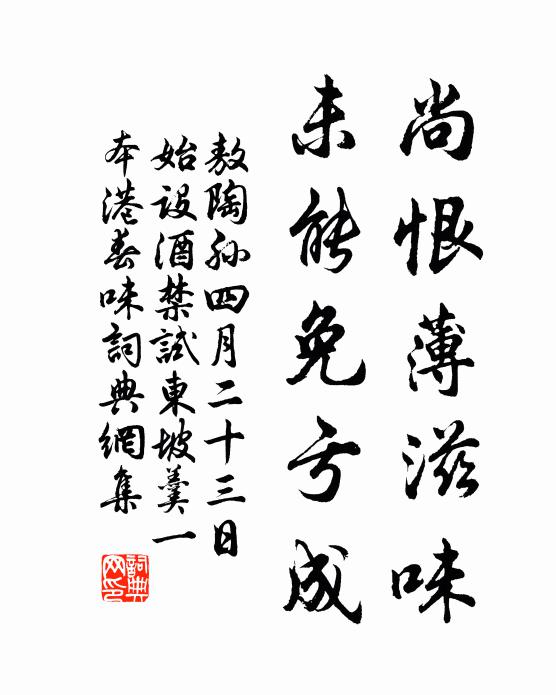 尚恨薄滋味
未能免亏成
敖陶孙四月二十三日
始設酒禁試東坡羹一
本港春味詞典網集
詞典
网印